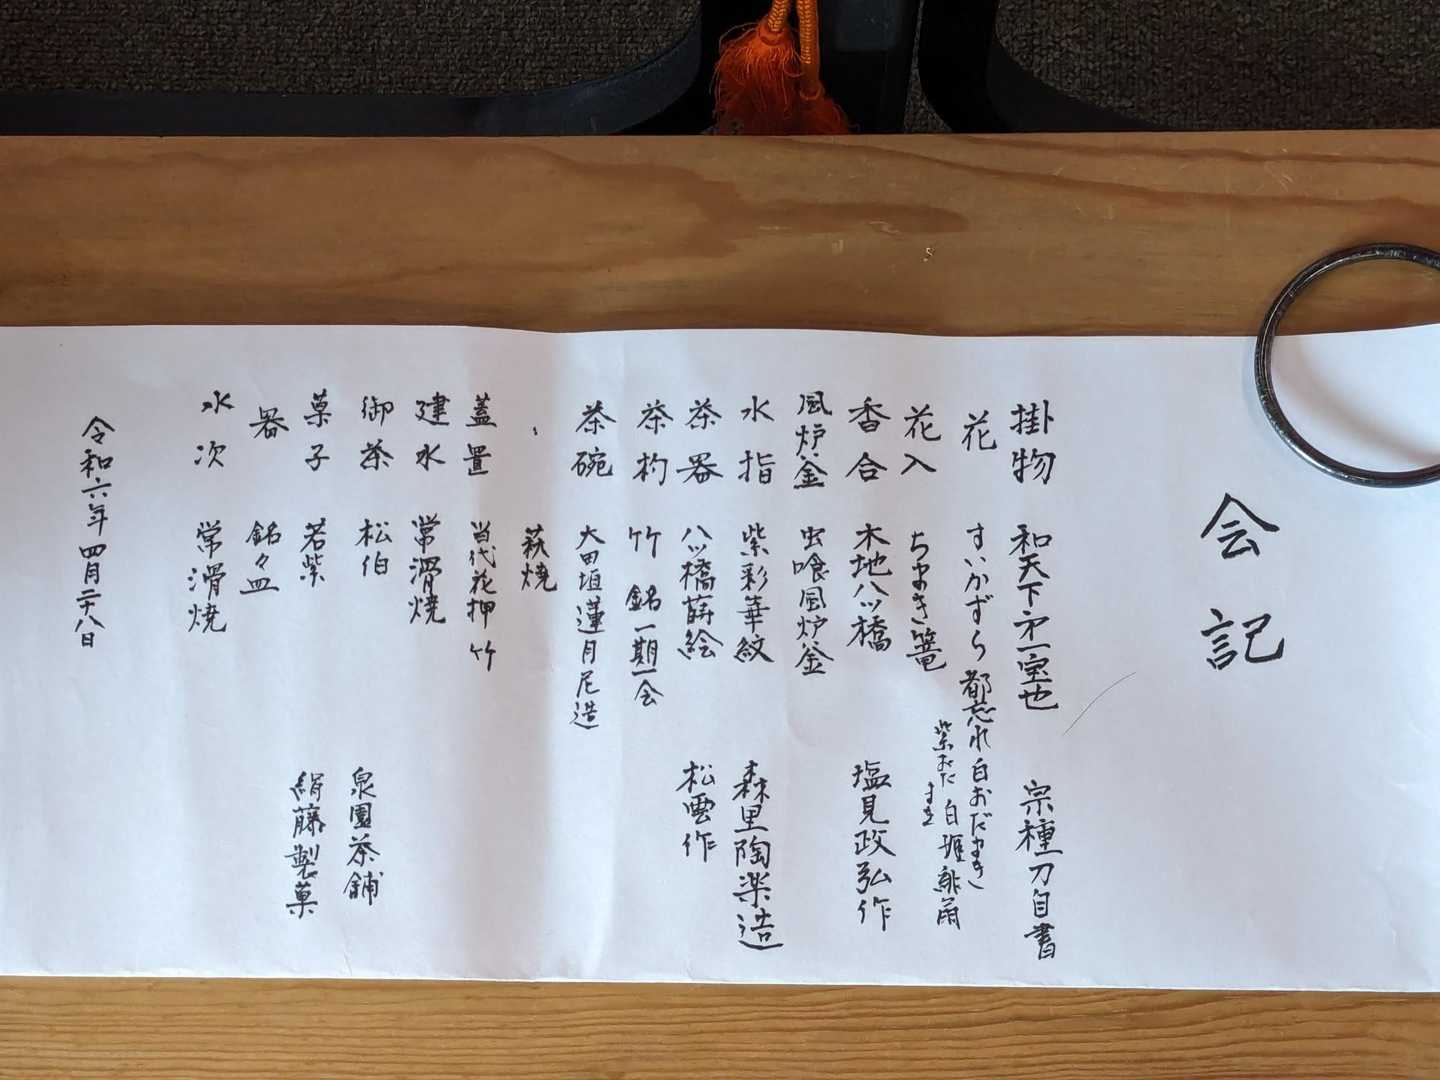 会記
掛物 和天下第一宝也 宗種一刀自書
花 すいかずら 都忘れ 白おだまき
紫おだまき 白
花入 ちまき篭
香合 木地八ッ橋 塩見政弘作
風炉釜 虫喰風炉釜
水指 紫彩華紋 森里陶楽造
茶器 八ッ橋蒔絵 松雲作
茶杓 竹 銘一期一会
茶碗 大田垣蓮月尼造
、 萩焼
蓋置 当代花押 竹
建水 常滑焼
御茶 松伯 泉園茶舗
菓子 若紫 絹藤製菓
器 銘々皿
水次 常滑焼
令和六年四月二十八日